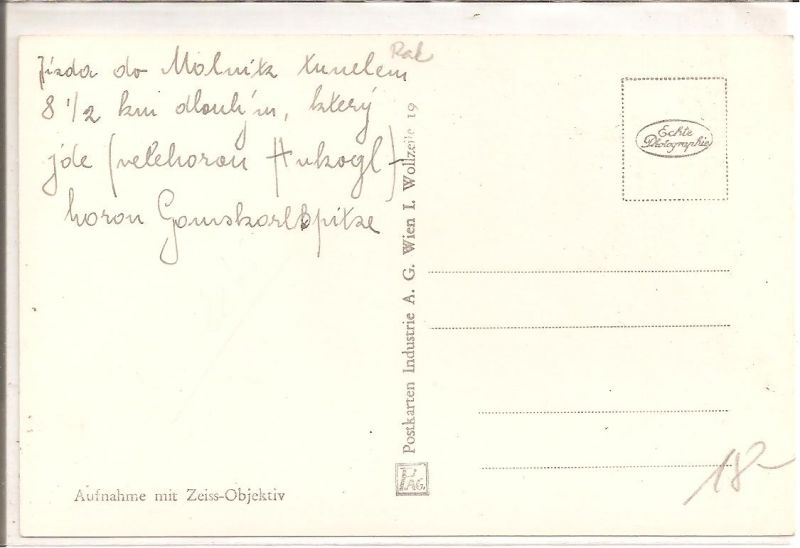 Rak
Jízda do Malnitz tunelem
8 1/2 km dlouhým, který
jde (velehorou Ankogl)
horou Gamskarlspitze
Echte
Photographie
Postkarten Industrie A. G. Wien I. Wollzeile 19
PAG.
Aufnahme mit Zeiss-Objektiv
18-